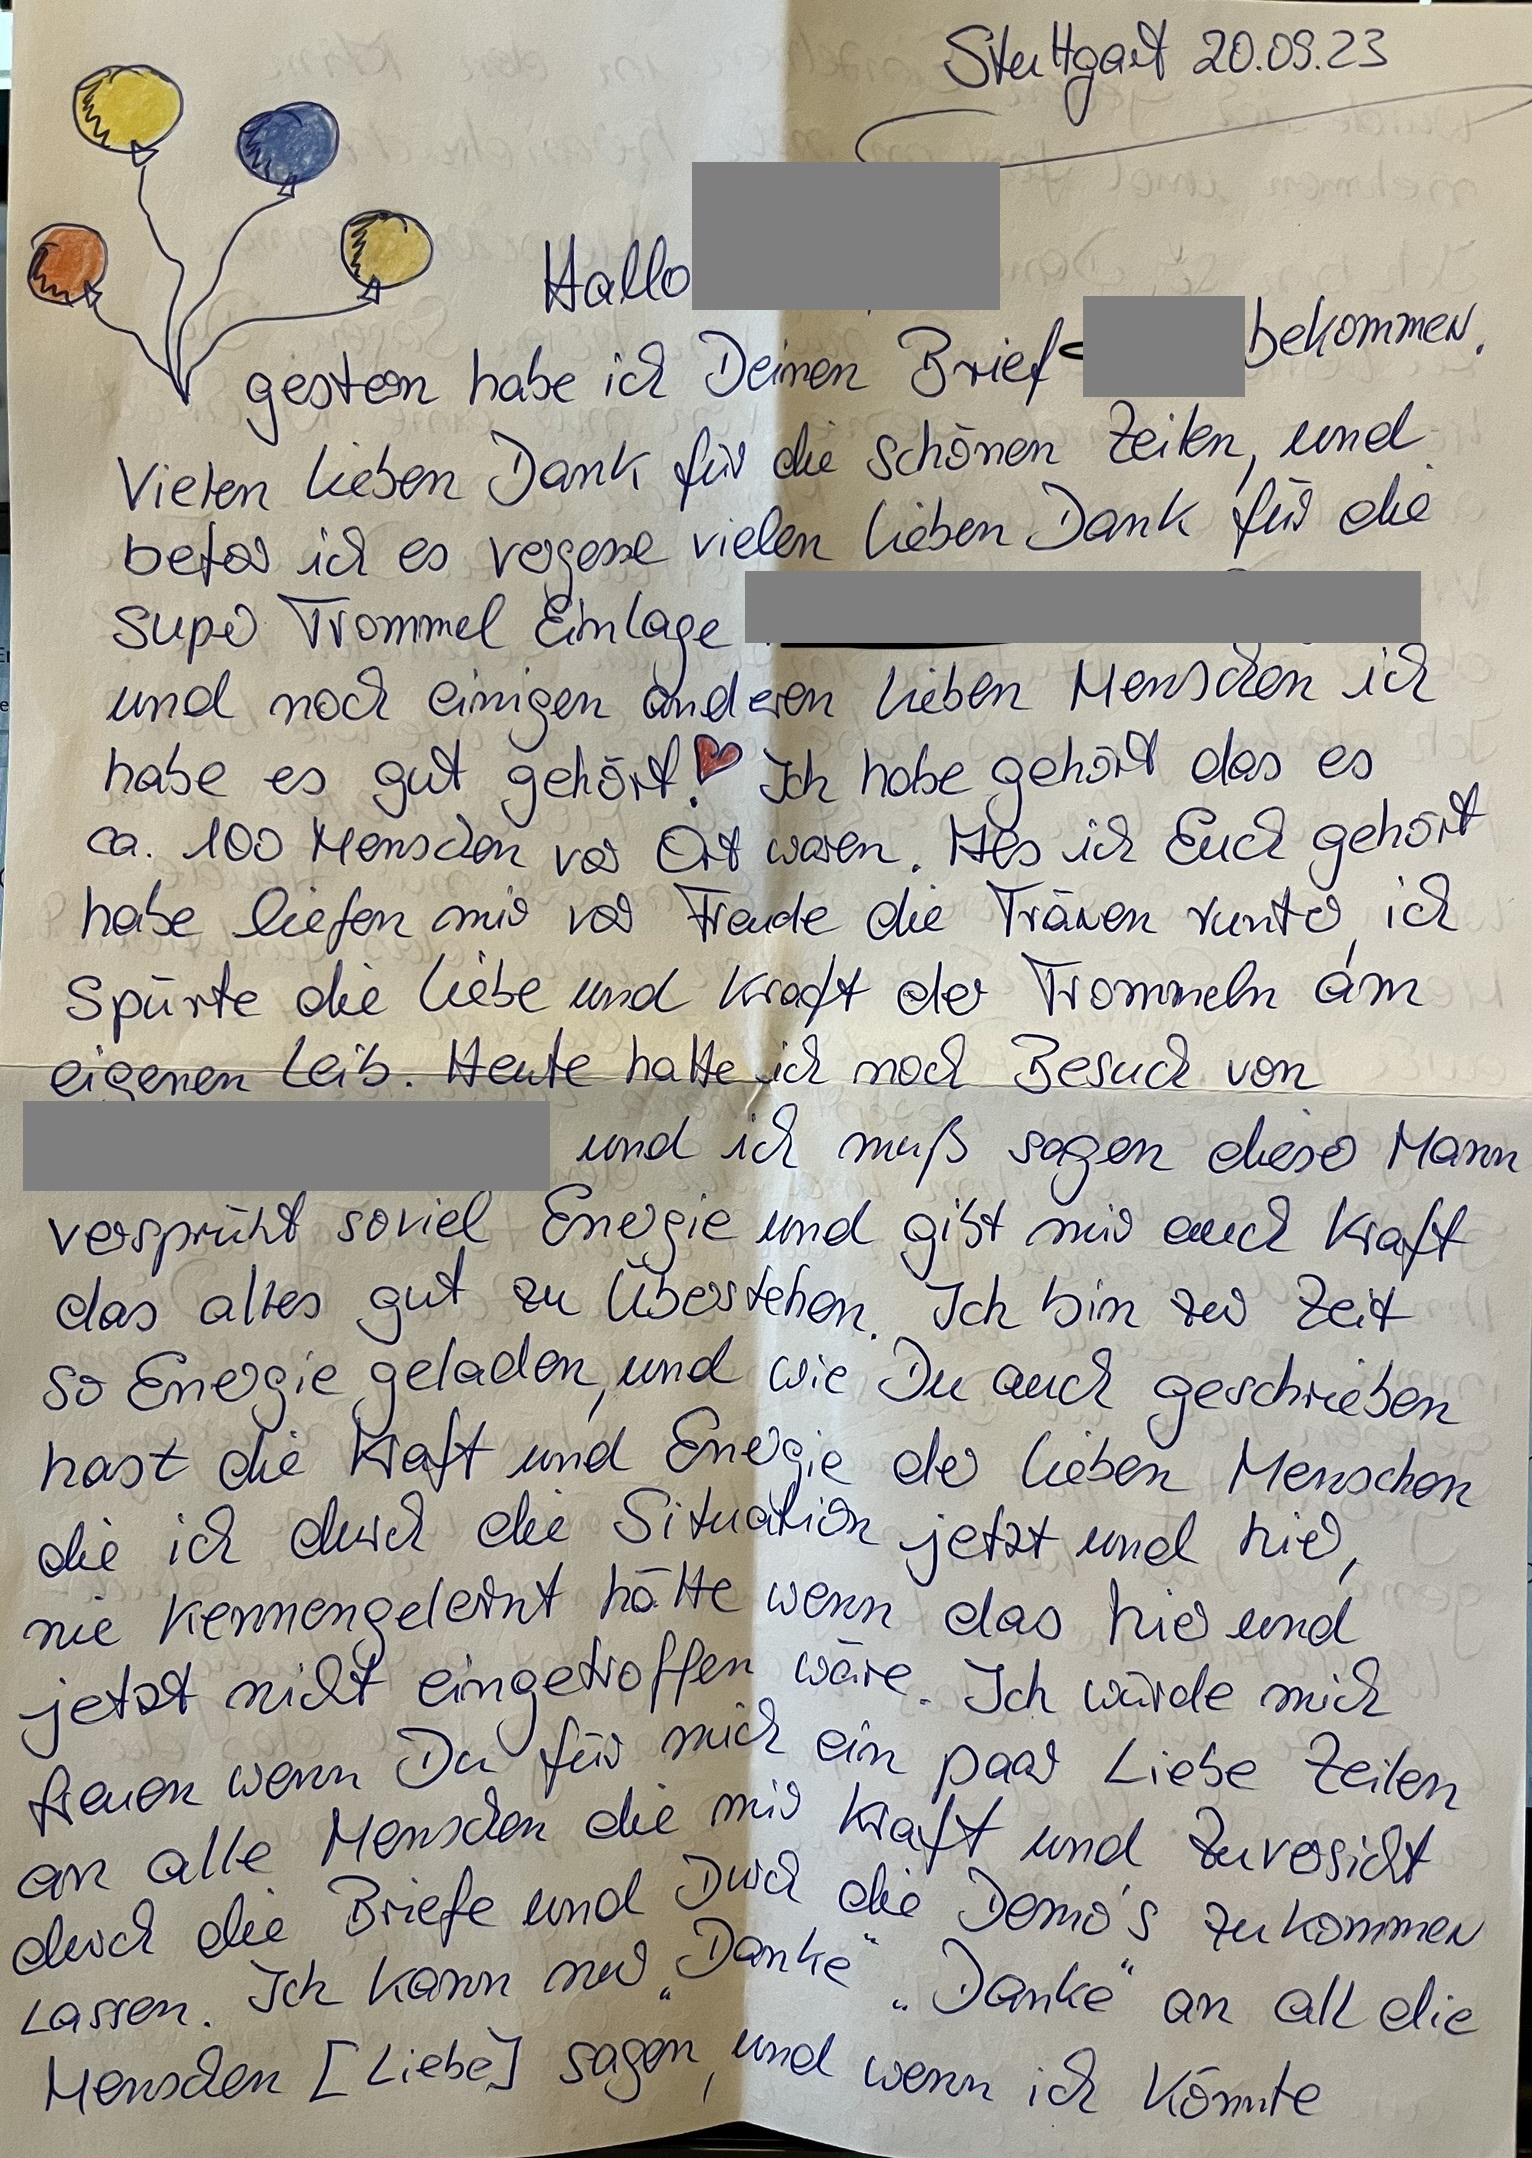 Stuttgart 20.09.23
Hallo
gestern habe ich Deinen Brief bekommen.
Vielen lieben Dank für die schönen Zeilen, und
befor ich es vergesse vielen lieben Dank für die
super Trommel Einlage
und noch einigen anderen lieben Menschen ich
habe es gut gehört! Ich habe gehört das es
ca. 100 Menschen vor Ort waren. Als ich Euch gehört
habe liefen mir vor Freude die Tränen runter, ich
spürte die Liebe und Kraft der Trommeln am
eigenen Leib. Heute hatte ich noch Besuch von
und ich muß sagen dieser Mann
versprüht soviel Energie und gibt mir auch Kraft
das alles gut zu Überstehen. Ich bin zur Zeit
so Energie geladen, und wie Du auch geschrieben
hast die Kraft und Energie der lieben Menschen
die ich durch die Situation jetzt und hier,
nie kennengelernt hätte wenn das hier und
jetzt nicht eingetroffen wäre. Ich würde mich
freuen wenn Du für mich ein paar Liebe Zeilen
an alle Menschen die mir Kraft und Zuversicht
durch die Briefe und Durch die Demo's zukommen
Lassen. Ich kann nur „Danke" „Danke" an all die
Menschen [Liebe] sagen, und wenn ich könnte